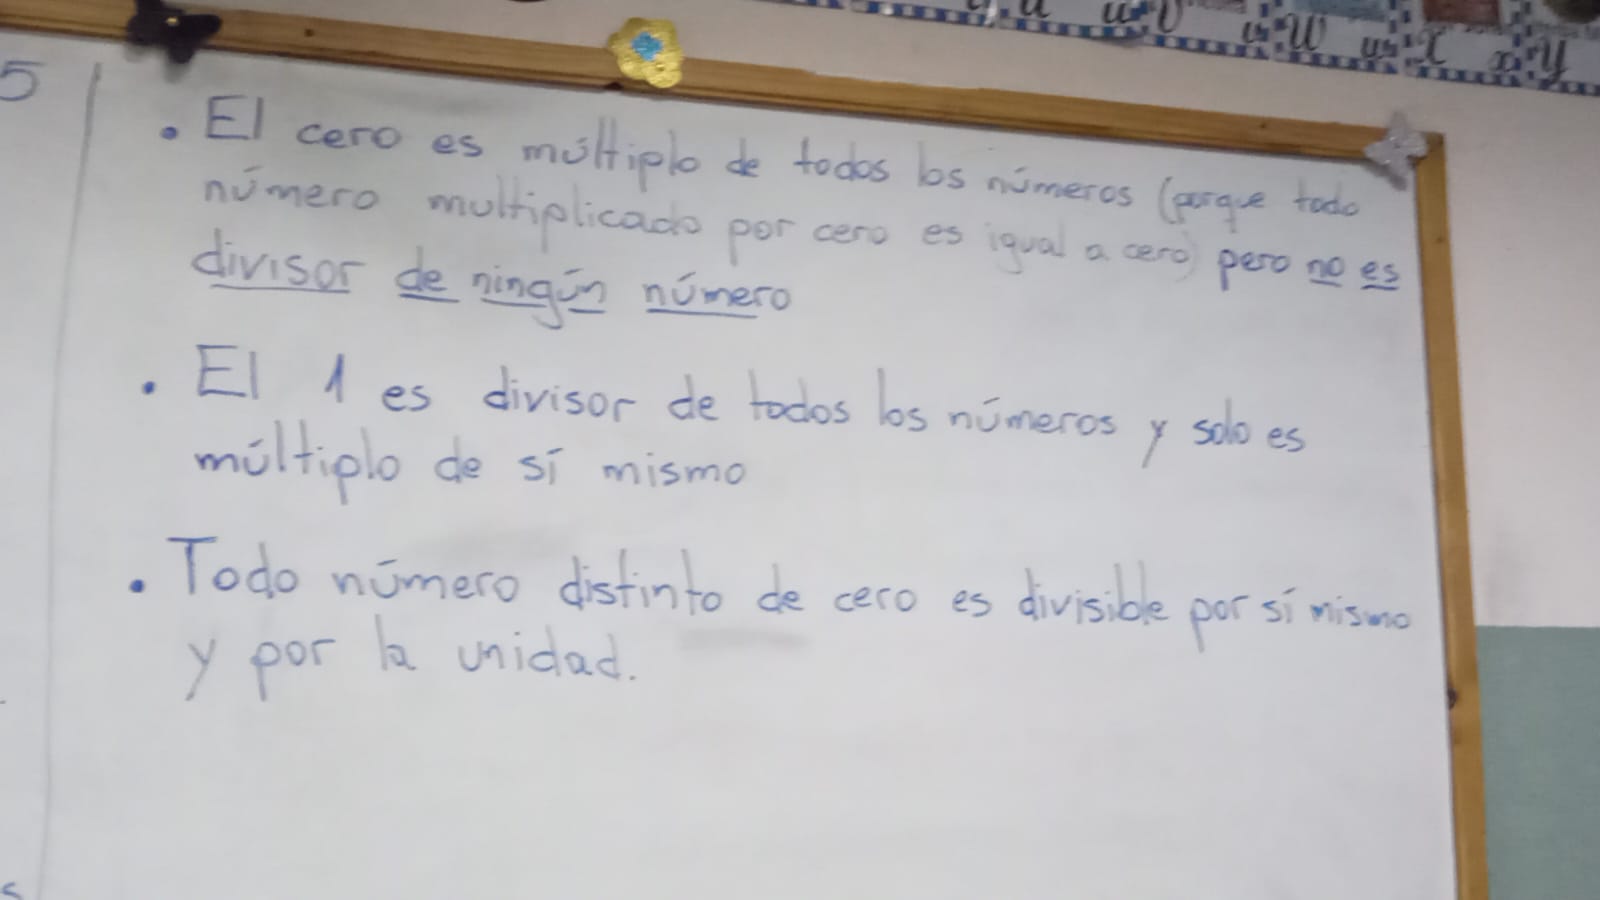 u u U u W w X x Y
5
• El cero es múltiplo de todos los números (porque todo
número multiplicado por cero es igual a cero) pero no es
divisor de ningún número
• El 1 es divisor de todos los números y solo es
múltiplo de sí mismo
• Todo número distinto de cero es divisible por sí mismo
y por la unidad.